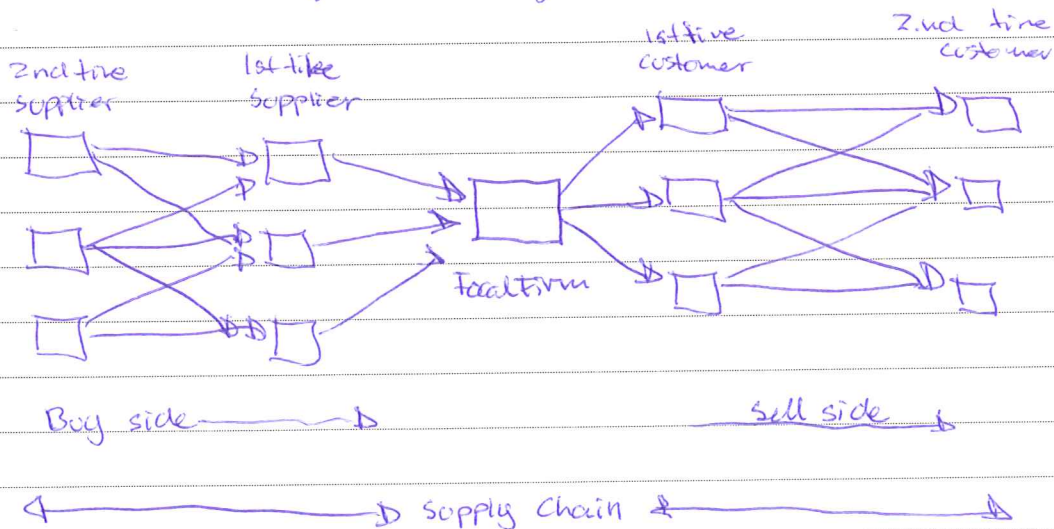 2nd tire
supplier
1st tire
supplier
1st tire
customer
2.nd tire
customer
Focal Firm
Buy side
Sell side
Supply Chain